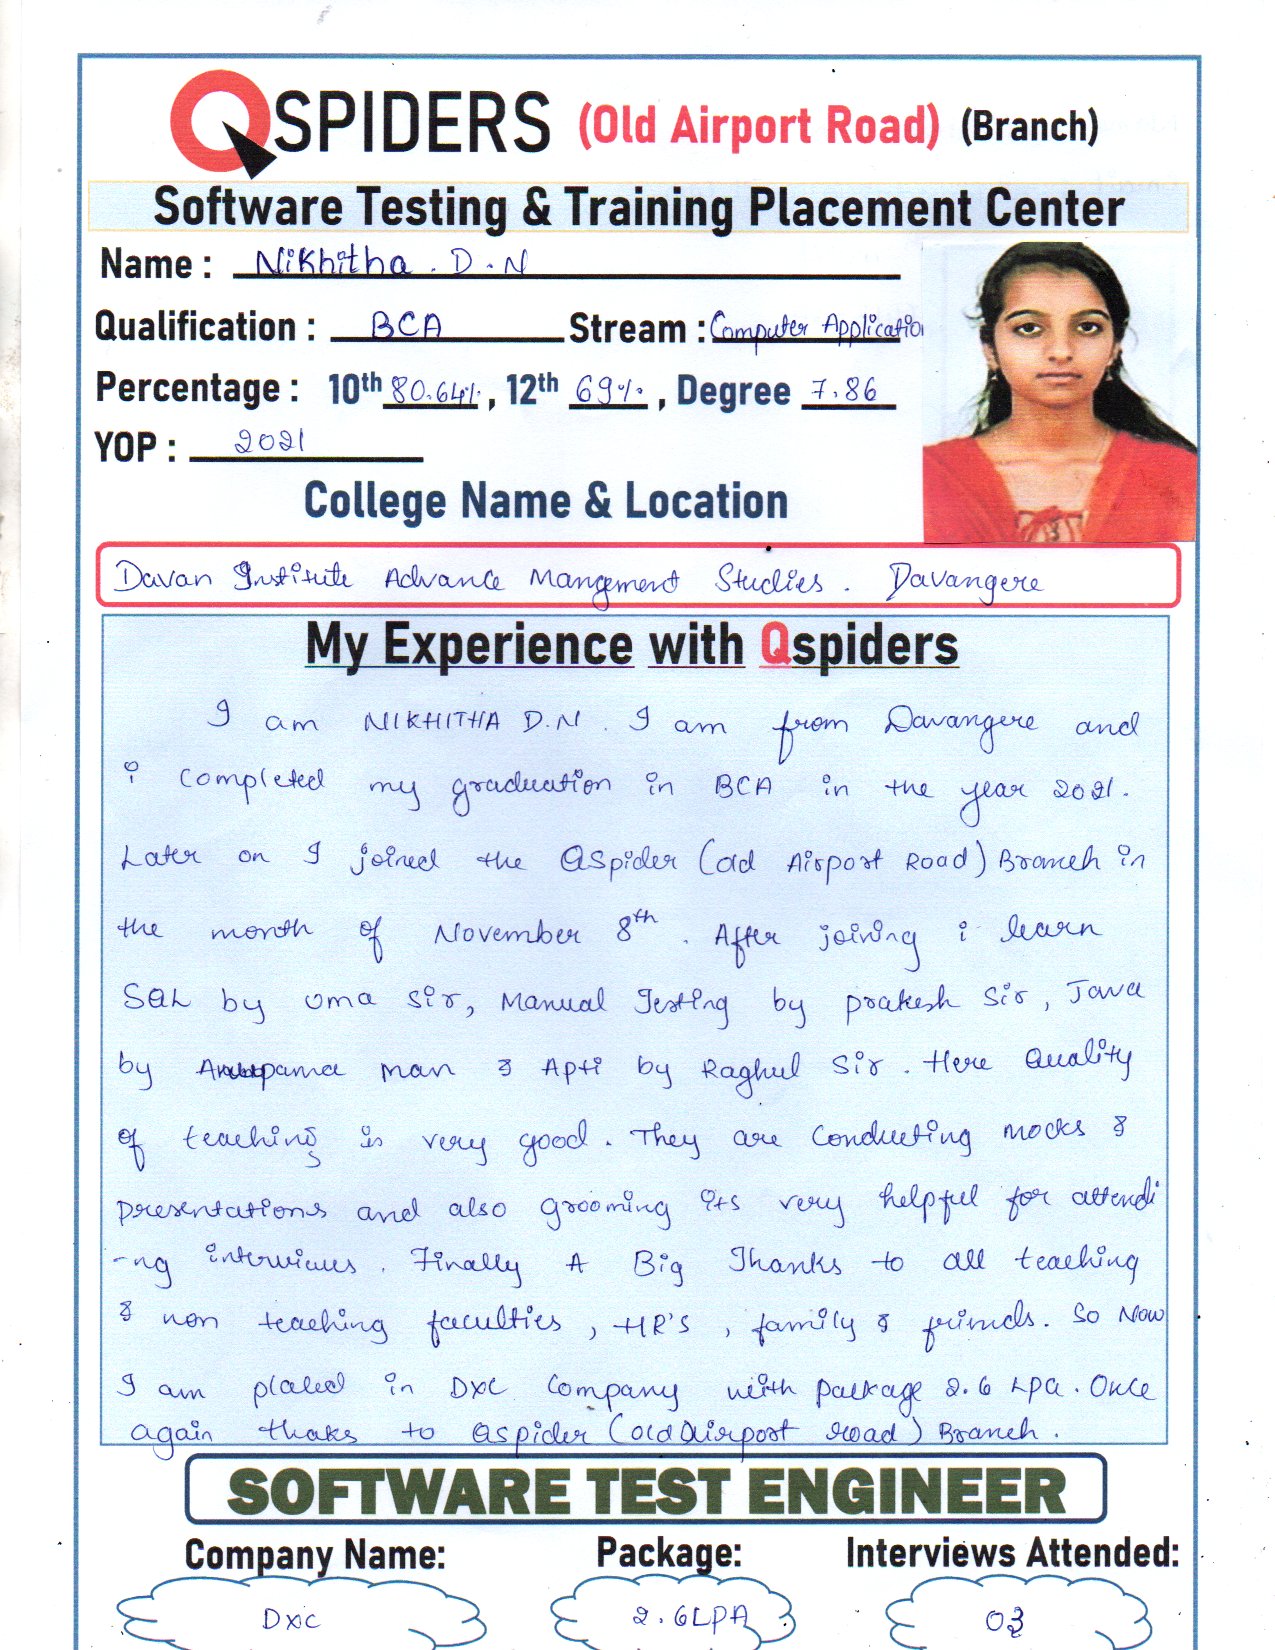 QSPIDERS (Old Airport Road) (Branch)
Software Testing & Training Placement Center
Name : Nikhitha . D . N
Qualification : BCA Stream : Computer Applicatio
Percentage : 10th 80.64% , 12th 69% , Degree 7.86
YOP : 2021
College Name & Location
Davan Institute Advance Mangement Studies . Davangere
My Experience with Qspiders
I am NIKHITHA D.N . I am from Davangere and
i completed my graduation in BCA in the year 2021.
Later on I joined the QSpider (old Airport Road) Branch in
the month of November 8th . After joining i learn
SQL by Uma Sir, Manual Testing by prakesh Sir , Java
by Anupama mam & Apti by Raghul Sir . Here Quality
of teaching is very good . They are Conducting mocks &
presentations and also grooming its very helpful for attendi
-ng interviews . Finally A Big Thanks to all teaching
& non teaching faculties , HR'S , family & friends. So Now
I am placed in DXC Company with package 2.6 LPA . Once
again thaks to Qspider (old Airport Road) Branch .
SOFTWARE TEST ENGINEER
Company Name: Package: Interviews Attended:
DXC 2.6LPA 03